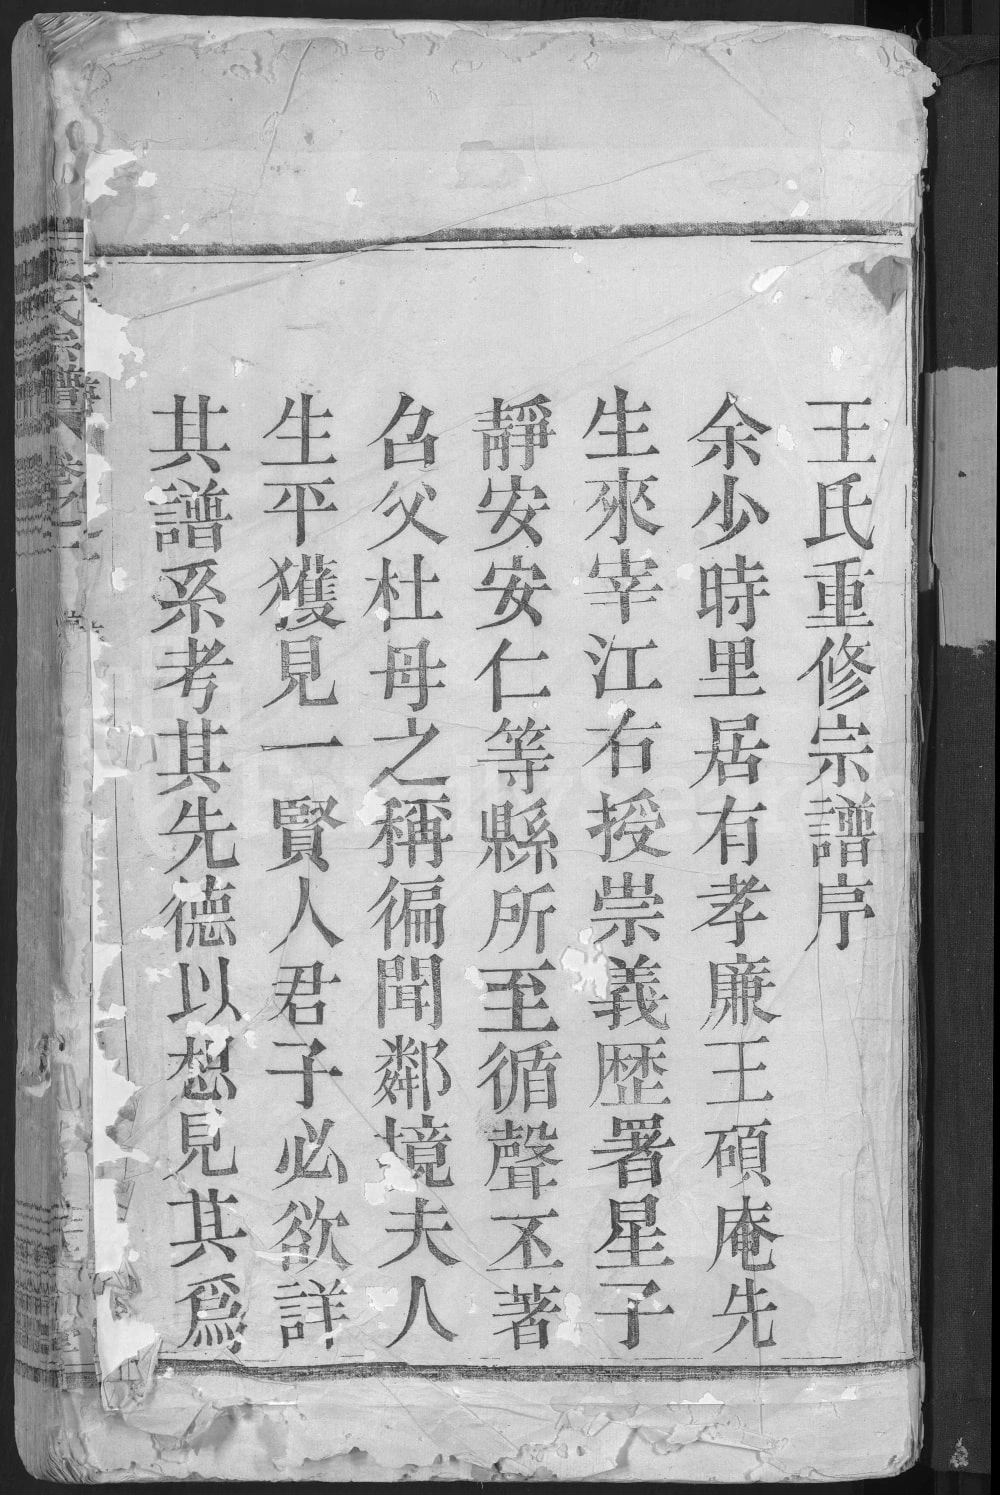 王氏重修宗譜序
余少時里居有孝廉王碩庵先
生來宰江右授崇義歴署星子
靜安安仁等縣所至循聲丕著
召父杜母之稱徧聞鄰境夫人
生平獲見一賢人君子必欲詳
其譜系考其先德以想見其爲
王氏宗譜
卷之一